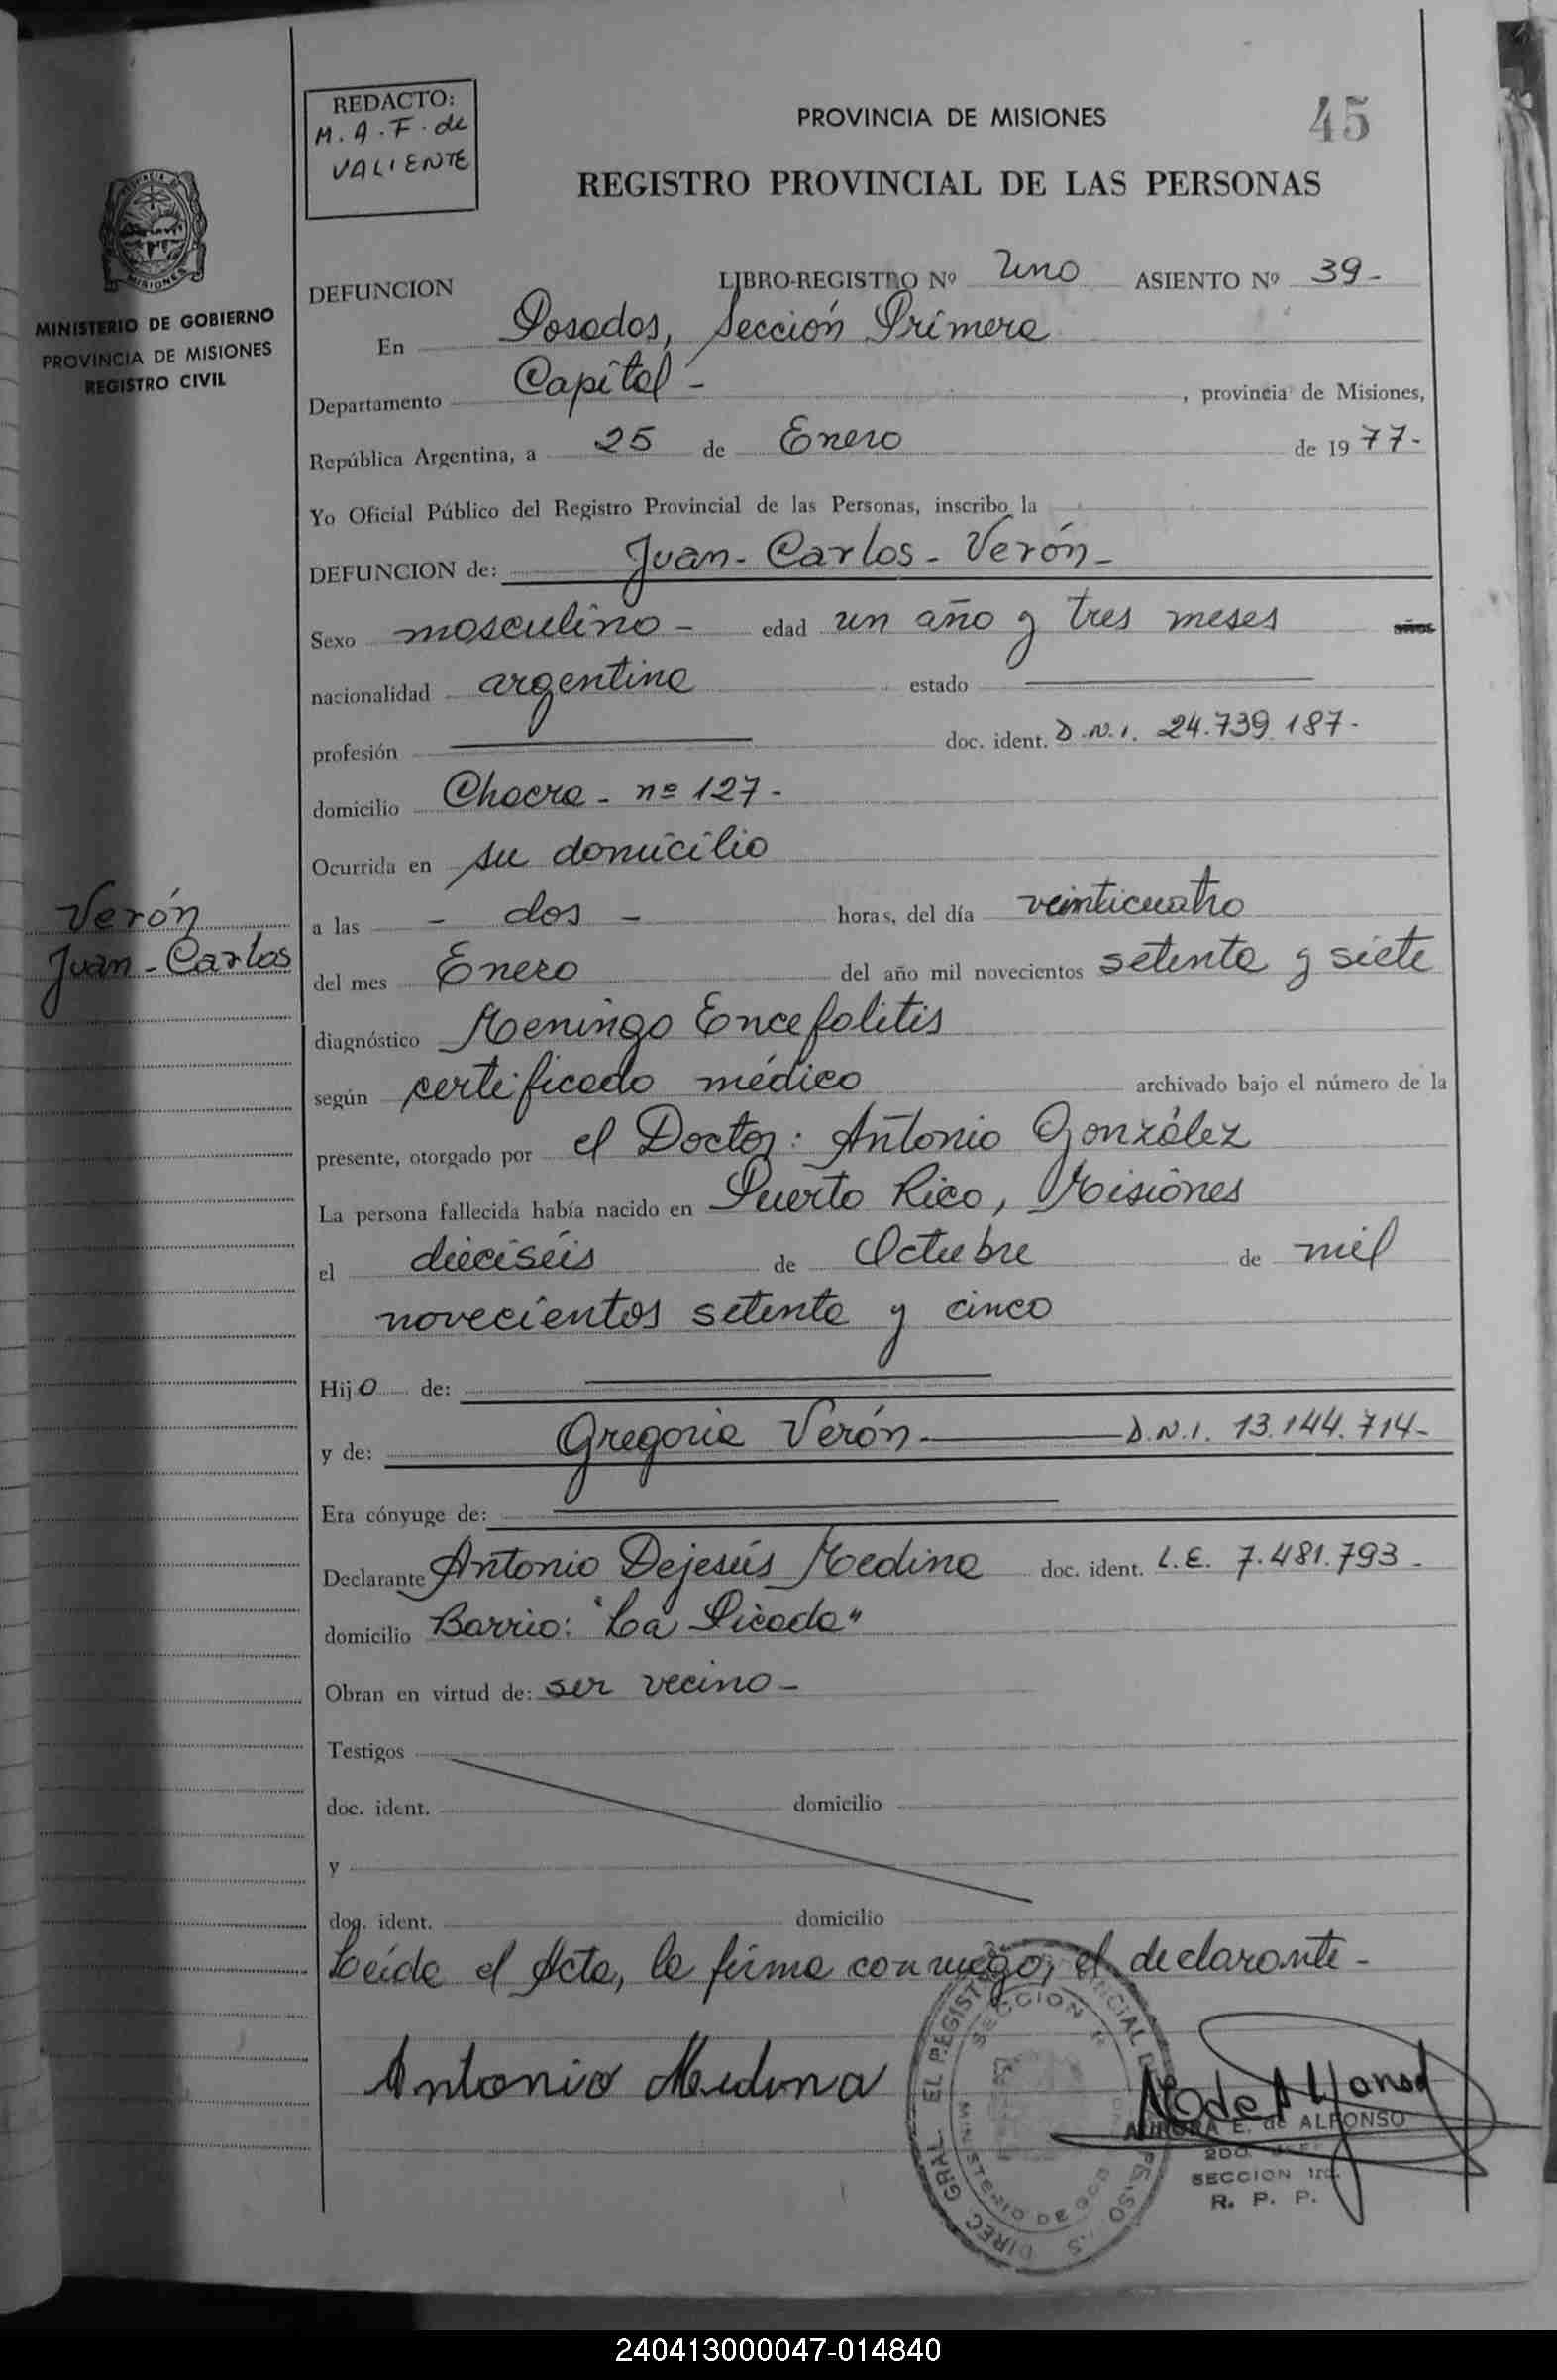 REDACTO:
M. A. F. de
VALIENTE
PROVINCIA DE MISIONES
45
REGISTRO PROVINCIAL DE LAS PERSONAS
MINISTERIO DE GOBIERNO
PROVINCIA DE MISIONES
REGISTRO CIVIL
DEFUNCION LIBRO-REGISTRO Nº Uno ASIENTO Nº 39-
En Posadas, Sección Primera
Departamento Capital - , provincia de Misiones,
República Argentina, a 25 de Enero de 1977-
Yo Oficial Público del Registro Provincial de las Personas, inscribo la
DEFUNCION de: Juan - Carlos - Verón -
Sexo masculino - edad un año y tres meses años
nacionalidad argentina estado
profesión doc. ident. D.N.I. 24.739.187-
domicilio Chacra - nº 127-
Ocurrida en su domicilio
Verón
Juan - Carlos
a las - dos - horas, del día veinticuatro
del mes Enero del año mil novecientos setenta y siete
diagnóstico Meningo Encefalitis
según certificado médico archivado bajo el número de la
presente, otorgado por el Doctor: Antonio González
La persona fallecida había nacido en Puerto Rico, Misiones
el dieciséis de Octubre de mil
novecientos setenta y cinco
Hijo de:
y de: Gregoria Verón - D.N.I. 13.144.714-
Era cónyuge de:
Declarante Antonio Dejesús Medina doc. ident. L.E. 7.481.793-
domicilio Barrio: "La Picada"
Obran en virtud de: ser vecino -
Testigos
doc. ident. domicilio
y
doc. ident. domicilio
Leída el Acta, la firma conmigo, el declarante -
Antonio Medina
AURORA E. de ALFONSO
2DO.
SECCION 1ra.
R. P. P.
240413000047-014840